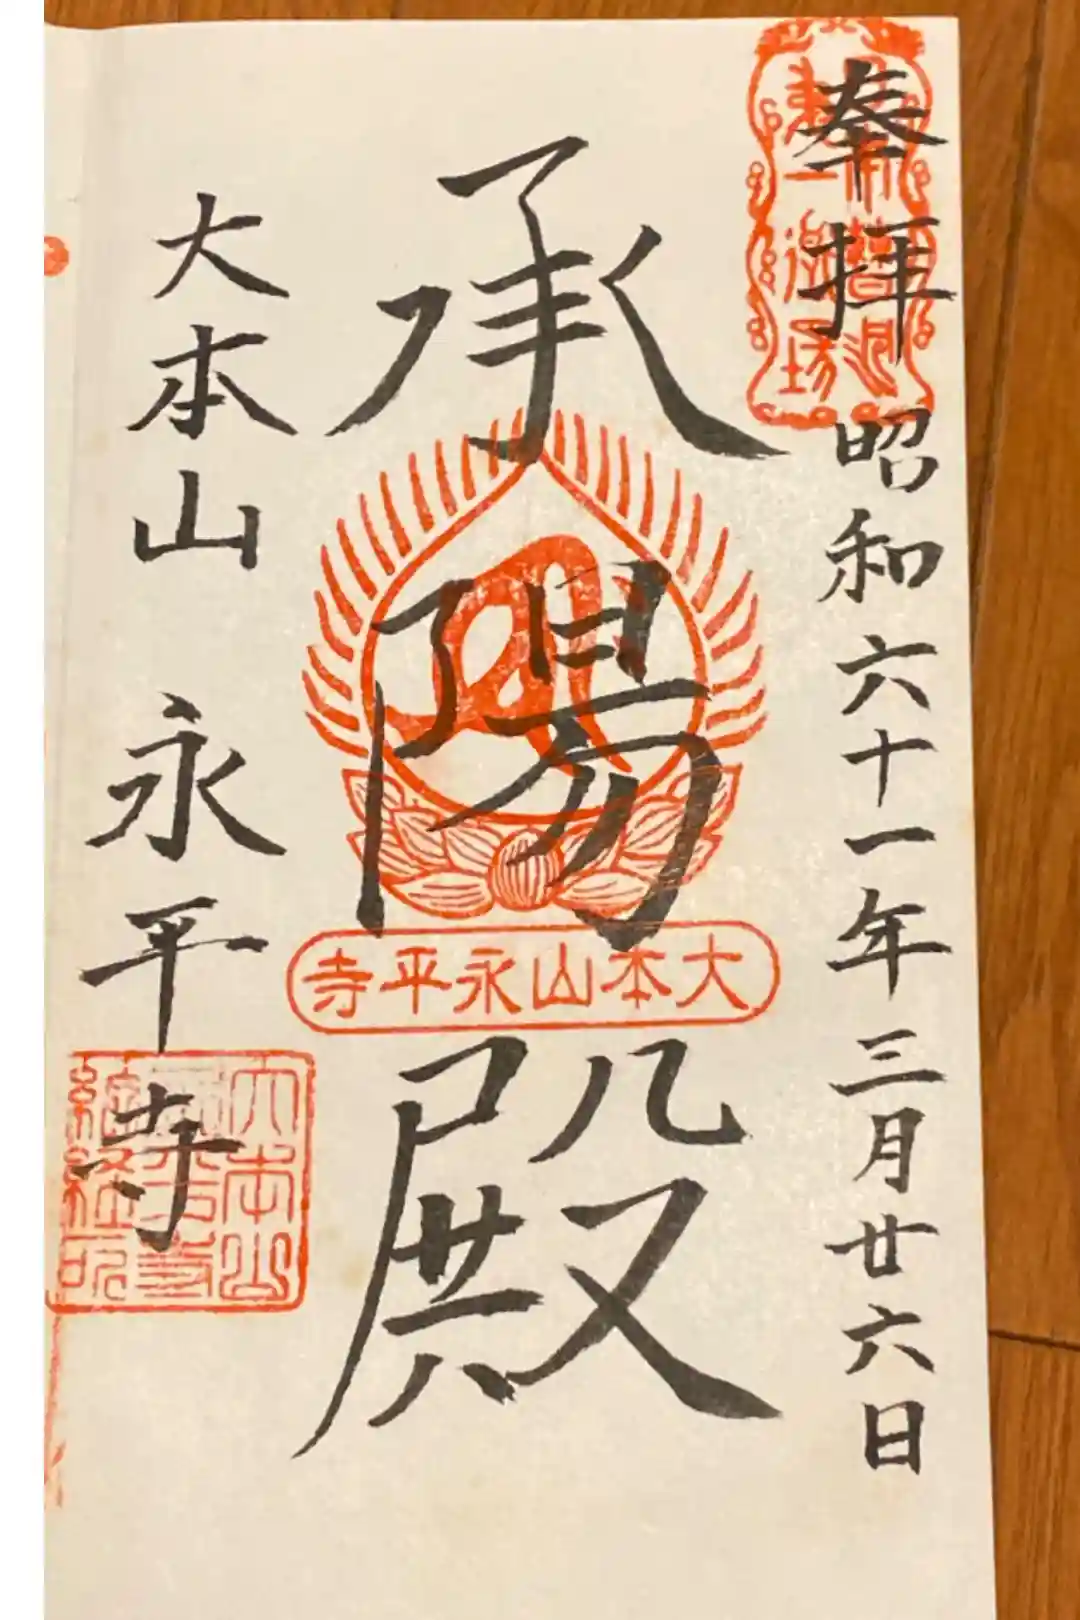 奉拝
昭和六十一年三月廿六日
承陽殿
大本山永平寺
大本山 永平寺